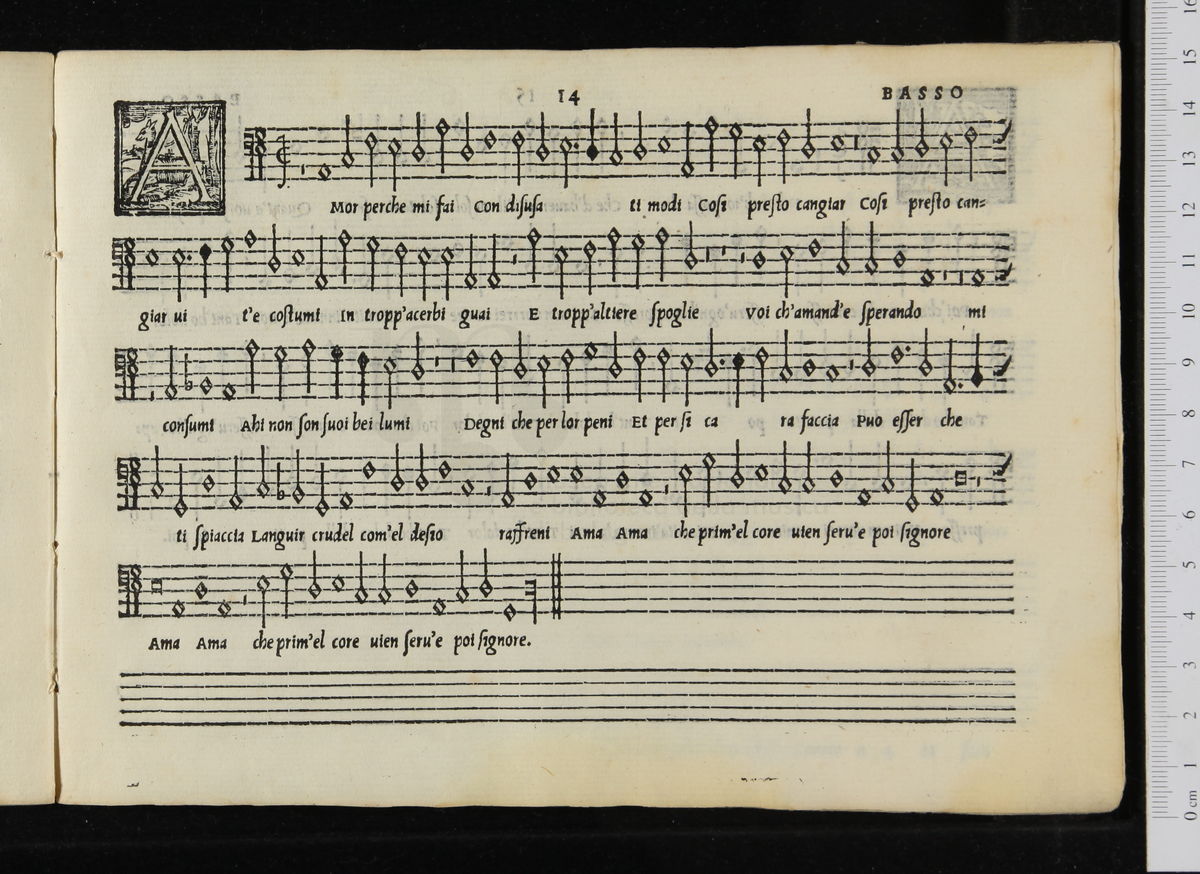 14
BASSO
A
Mor perche mi fai Con diſuſa ti modi Coſi preſto cangiar Coſi preſto can=
giar ui t'e coſtumi In tropp'acerbi guai E tropp'altiere ſpoglie Voi ch'amand'e ſperando mi
conſumi Ahi non ſon ſuoi bei lumi Degni che per lor peni Et per ſi ca ra faccia Puo eſſer che
ti ſpiaccia Languir crudel com'el deſio raffreni Ama Ama che prim'el core uien ſeru'e poi ſignore
Ama Ama che prim'el core uien ſeru'e poi ſignore.
0 cm 1 2 3 4 5 6 7 8 9 10 11 12 13 14 15 16